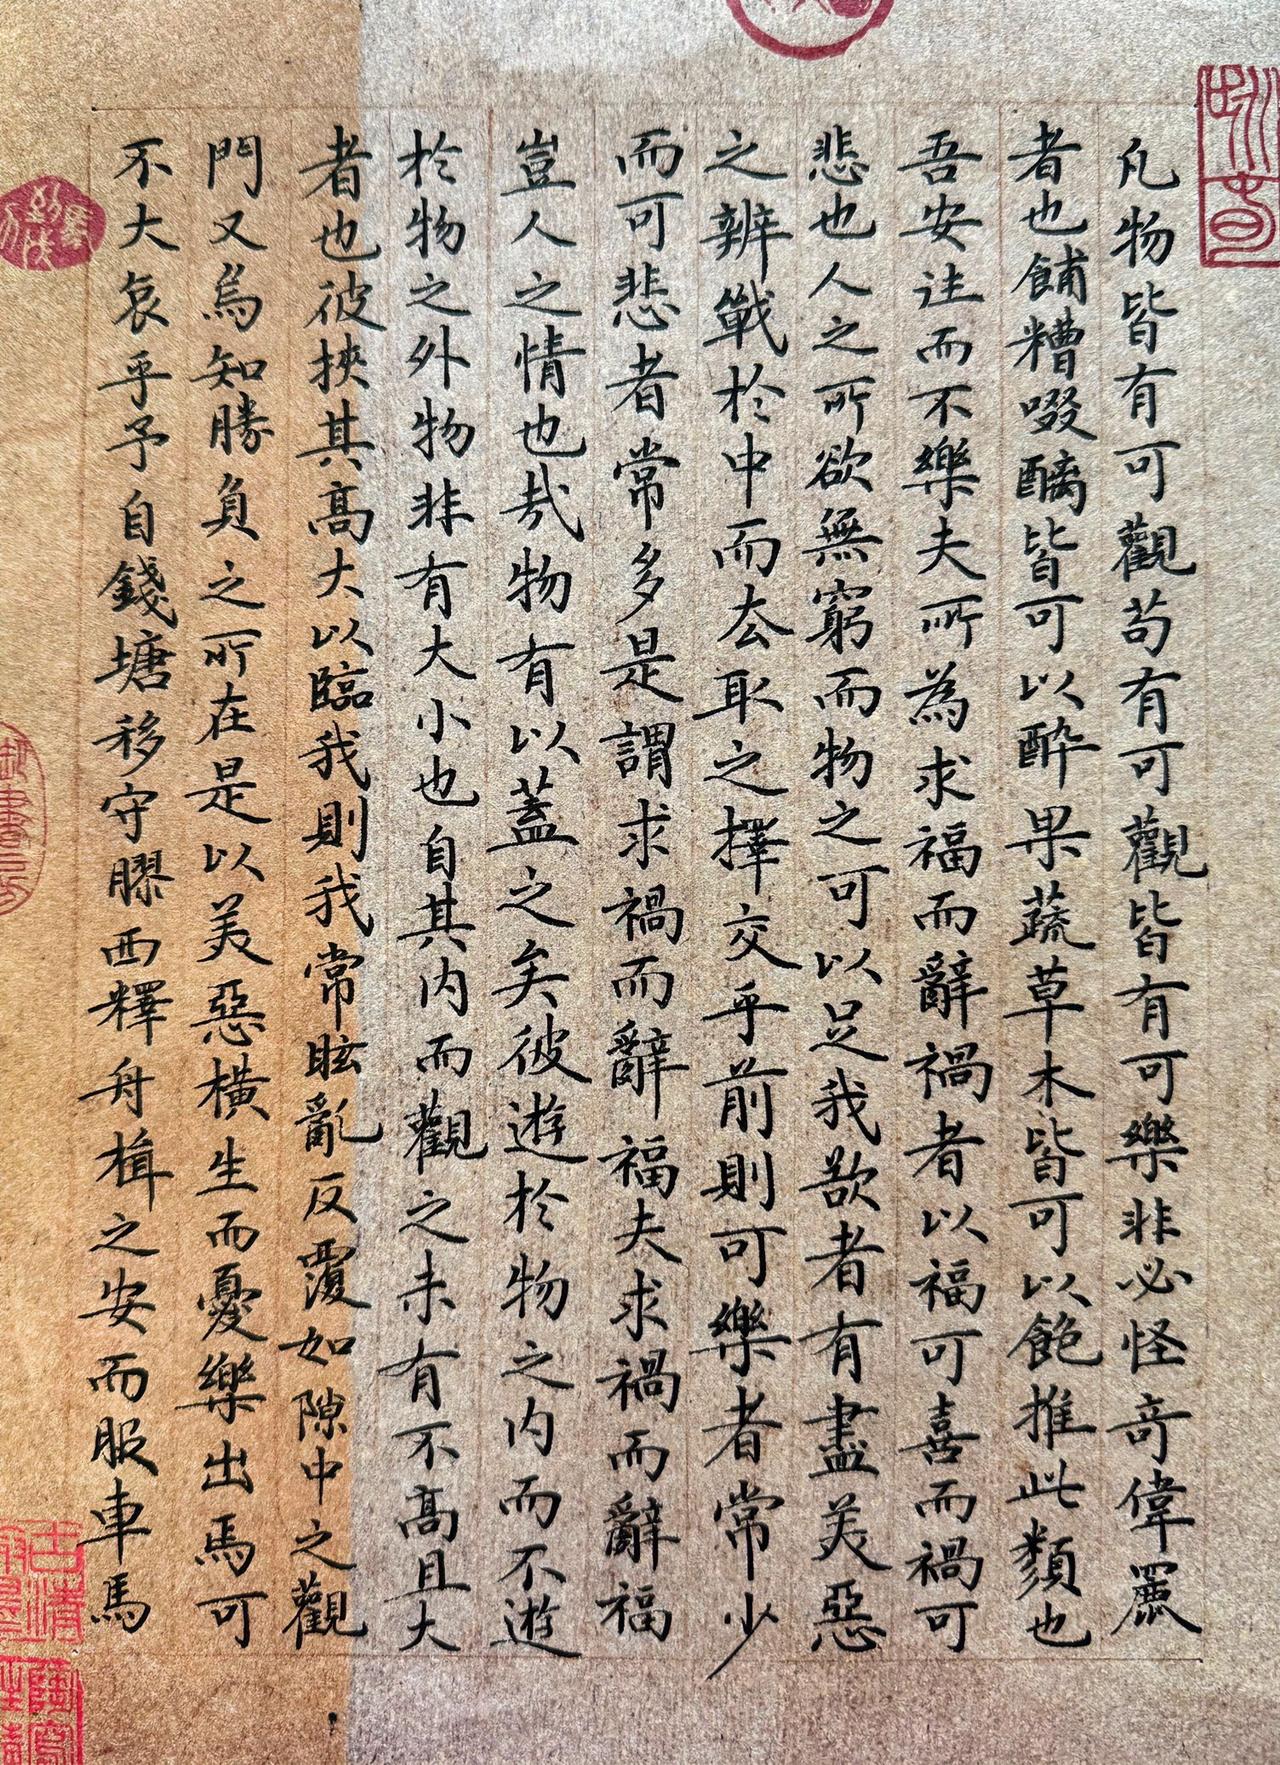 凡物皆有可觀苟有可觀皆有可樂非必怪奇偉麗
者也餔糟啜醨皆可以醉果蔬草木皆可以飽推此類也
吾安往而不樂夫所為求福而辭禍者以福可喜而禍可
悲也人之所欲無窮而物之可以足我欲者有盡美惡
之辨戰於中而去取之擇交乎前則可樂者常少
而可悲者常多是謂求禍而辭福夫求禍而辭福
豈人之情也哉物有以蓋之矣彼遊於物之內而不遊
於物之外物非有大小也自其內而觀之未有不高且大
者也彼挾其高大以臨我則我常眩亂反覆如隙中之觀
鬥又烏知勝負之所在是以美惡橫生而憂樂出焉可
不大哀乎予自錢塘移守膠西釋舟楫之安而服車馬